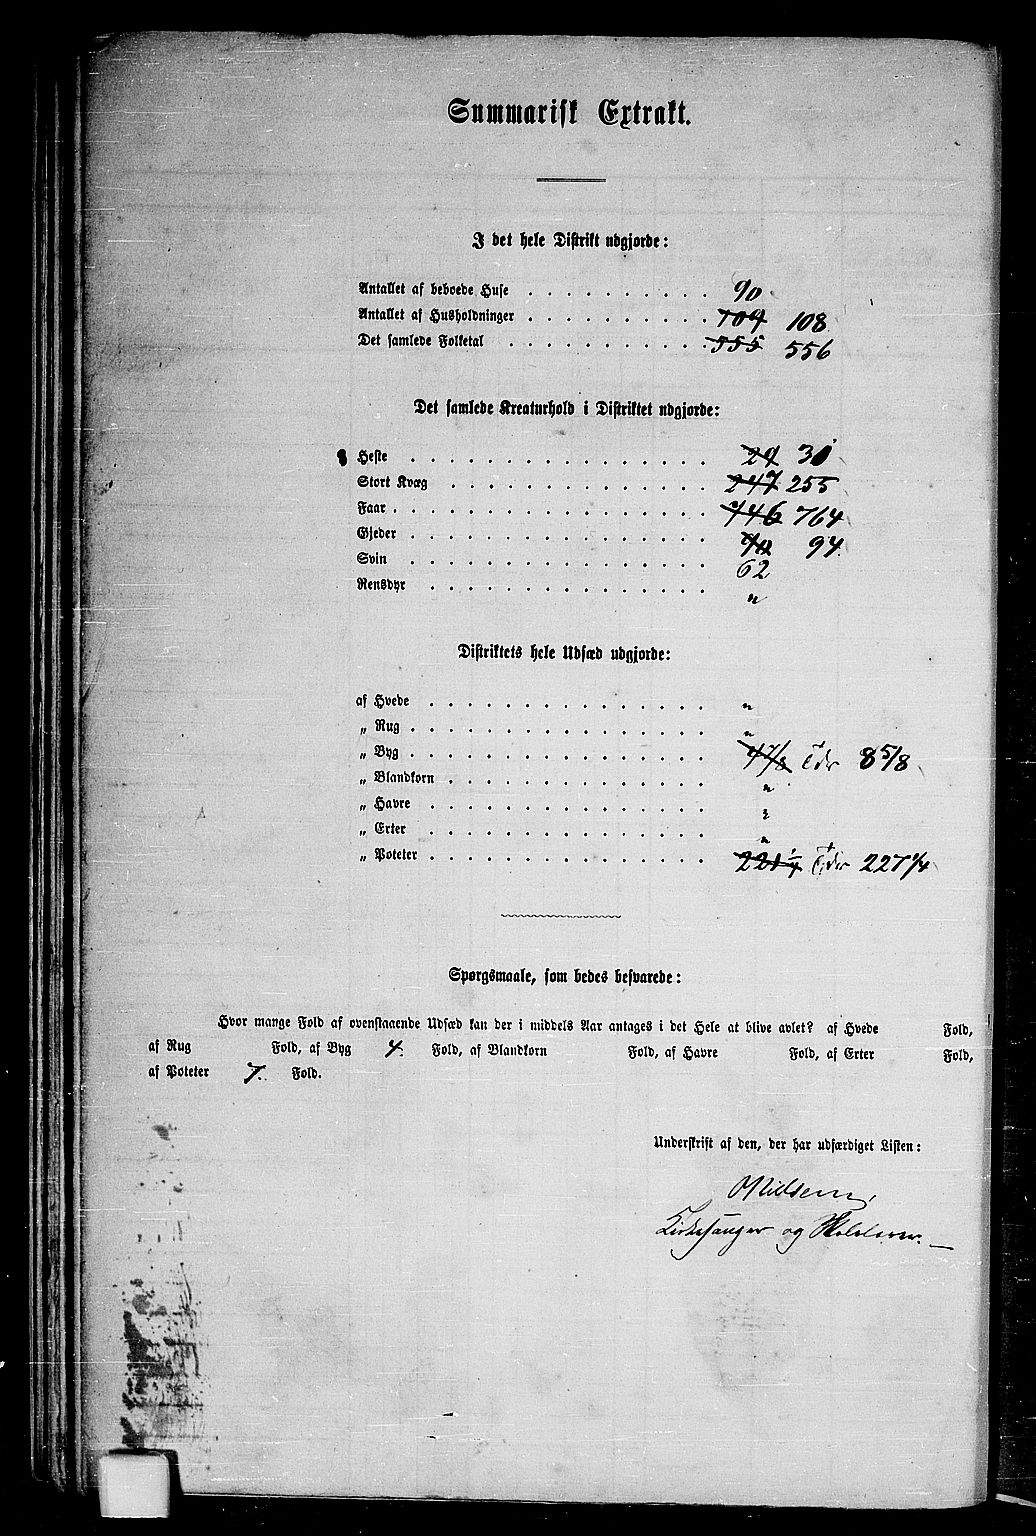 Summarisk Extrakt.
I det hele Distrikt udgjorde:
Antallet af beboede Huse . . . . . . . . . . 90
Antallet af Husholdninger . . . . . . . . . . 109 108
Det samlede Folketal . . . . . . . . . . . 555 556
Det samlede Kreaturhold i Distriktet udgjorde:
Heste . . . . . . . . . . . . . . . 29 30
Stort Kvæg . . . . . . . . . . . . . 247 255
Faar . . . . . . . . . . . . . . . . 746 764
Gjeder . . . . . . . . . . . . . . . 94
Svin . . . . . . . . . . . . . . . 62
Rensdyr . . . . . . . . . . . . . . "
Distriktets hele Udsæd udgjorde:
af Hvede . . . . . . . . . . . . . . "
„ Rug . . . . . . . . . . . . . . . "
„ Byg . . . . . . . . . . . . . . . Tdr 8 5/8
„ Blandkorn . . . . . . . . . . . . . "
„ Havre . . . . . . . . . . . . . . "
„ Erter . . . . . . . . . . . . . . "
„ Poteter . . . . . . . . . . . . . . 221 1/4 Tdr 227 1/4
Spørgsmaale, som bedes besvarede:
Hvor mange Fold af ovenstaaende Udsæd kan der i middels Aar antages i det Hele at blive avlet? af Hvede Fold,
af Rug Fold, af Byg 4. Fold, af Blandkorn Fold, af Havre Fold, af Erter Fold,
af Poteter 7. Fold.
Underskrift af den, der har udfærdiget Listen:
Nilsen,
Kirkesanger og Skolelærer.